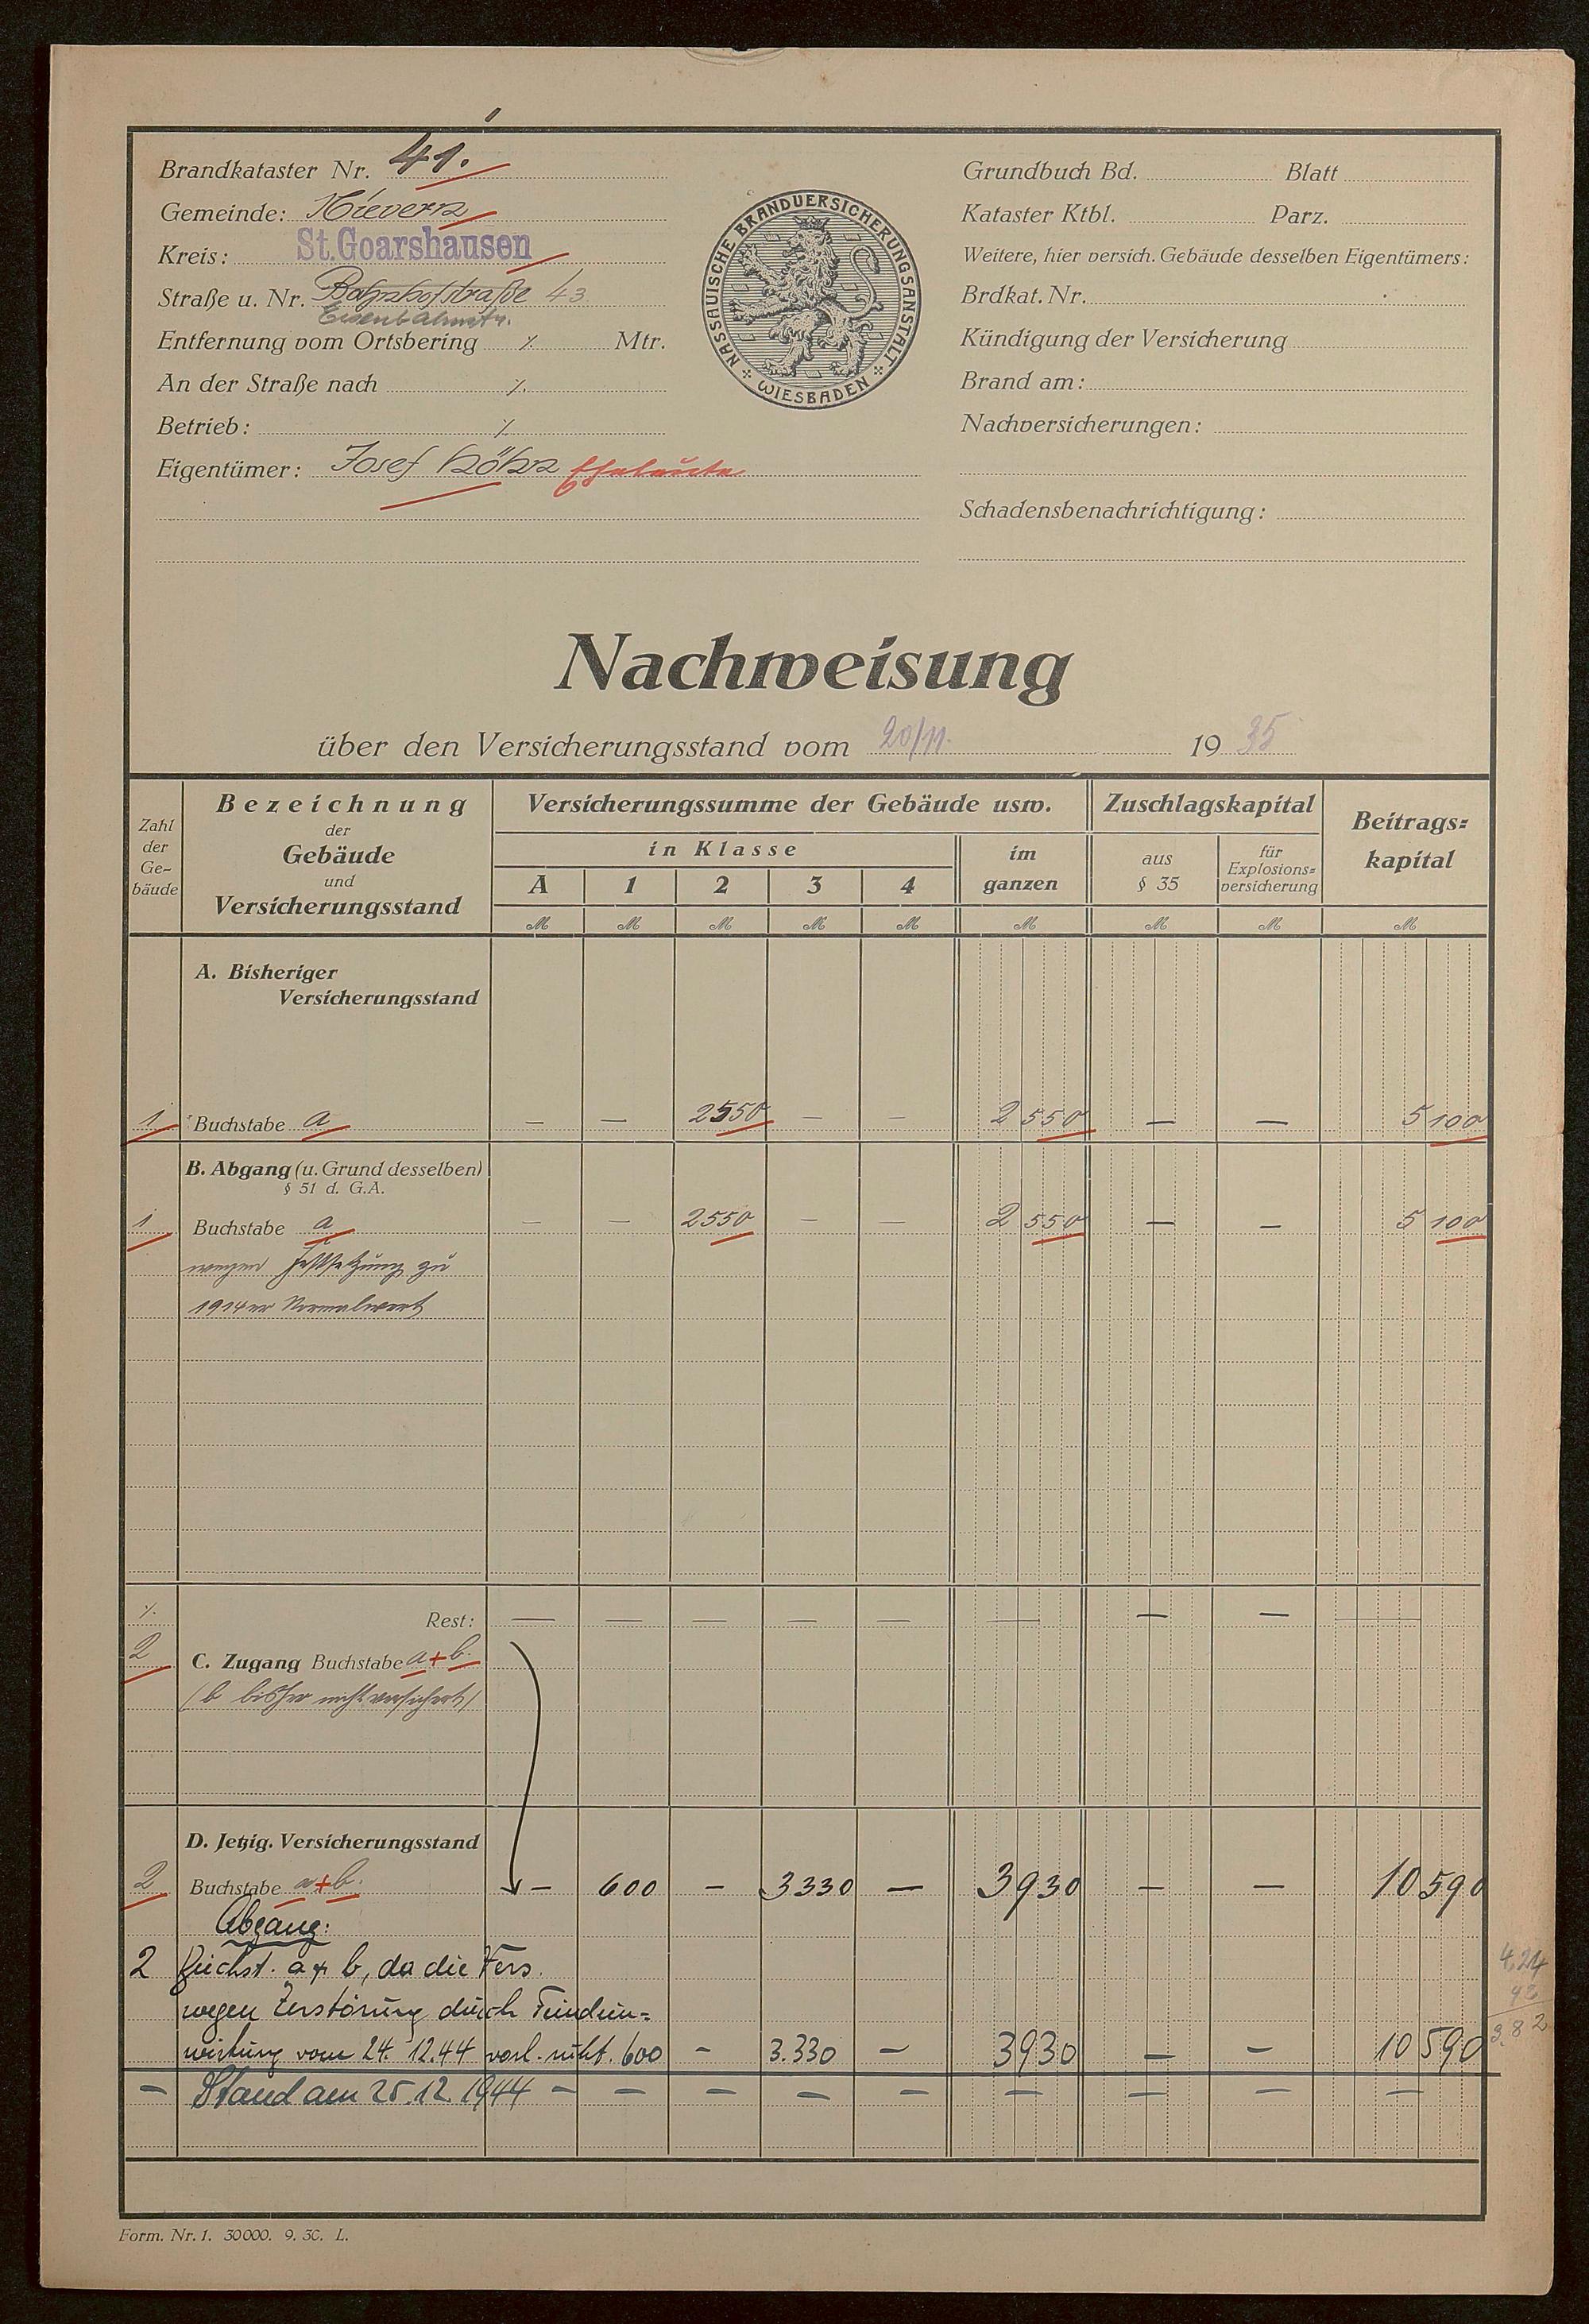 Brandkataster Nr. 41.
Gemeinde: Nievern
Kreis: St. Goarshausen
Straße u. Nr. Bahnhofstraße 43
Eisenbahnstr.
Entfernung vom Ortsbering ⁒ Mtr.
An der Straße nach ⁒
Betrieb: ⁒
Eigentümer: Josef Eheleute
Grundbuch Bd. Blatt
Kataster Ktbl. Parz.
Weitere, hier versich. Gebäude desselben Eigentümers:
Brdkat. Nr.
Kündigung der Versicherung
Brand am:
Nachversicherungen:
Schadensbenachrichtigung:
NASSAUISCHE BRANDVERSICHERUNGSANSTALT
WIESBADEN
Nachweisung
über den Versicherungsstand vom 20/11. 19 35
Zahl der Ge- bäude
Bezeichnung der Gebäude und Versicherungsstand
Versicherungssumme der Gebäude usw.
in Klasse
A 1 2 3 4
im ganzen
Zuschlagskapital
aus § 35
für Explosions= versicherung
Beitrags= kapital
M M M M M M M M M
A. Bisheriger
Versicherungsstand
1 Buchstabe a — — 2550 — — 2 550 — — 5 100
B. Abgang (u. Grund desselben)
§ 51 d. G.A.
1 Buchstabe a — — 2550 — — 2 550 — — 5 100
wegen Festsetzung zu
1914er Normalwert
⁒ Rest: — — — — — — — — —
2 C. Zugang Buchstabe a + b.
(b bisher nicht versichert)
D. Jetzig. Versicherungsstand
2 Buchstabe a + b. — 600 — 3330 — 3930 — — 10 590
Abgang:
2 Buchst. a + b, da die Vers.
wegen Zerstörung durch Feindein=
wirkung vom 24. 12. 44 vorl. ruht. 600 — 3.330 — 3930 — — 10 590
— Stand am 25. 12. 1944 — — — — — — — — —
4,24
92
3.82
Form. Nr. 1. 30000. 9. 30. L.